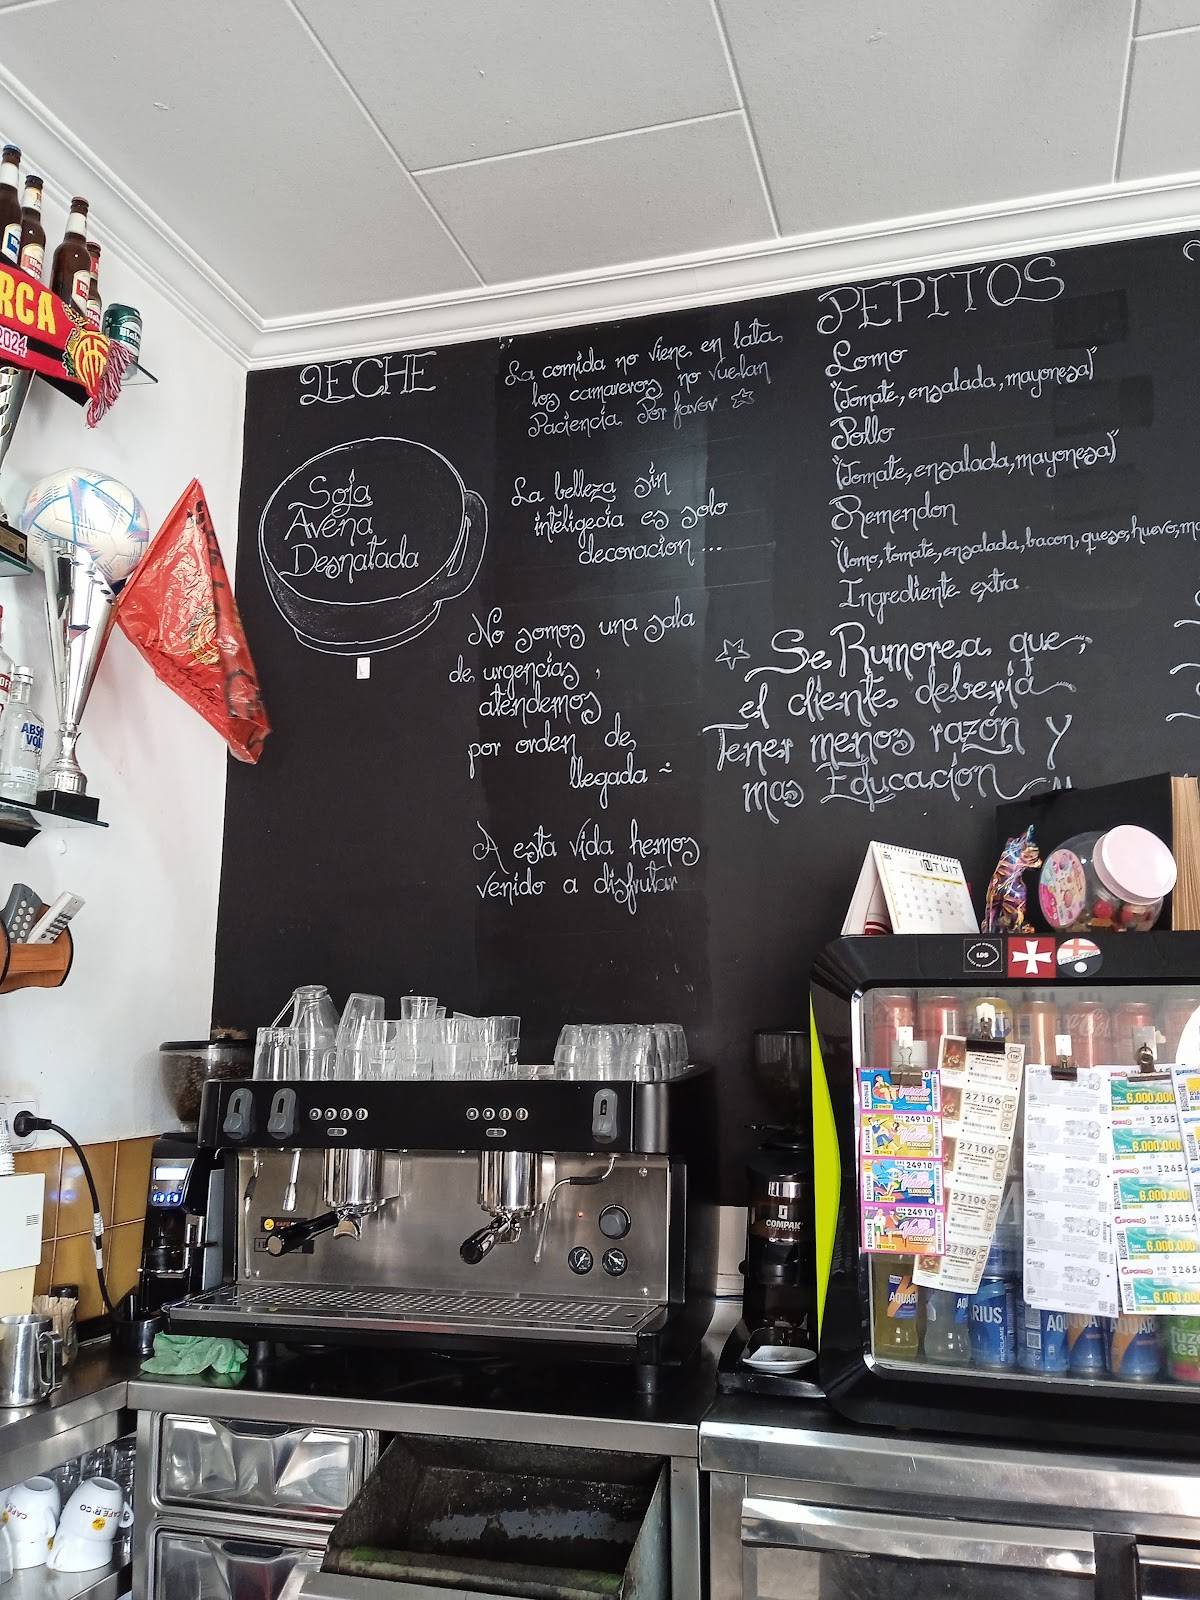 RCA
2024
LECHE
Soja
Avena
Desnatada
La comida no viene en lata
los camareros no vuelan
Paciencia Por favor
La belleza sin
inteligecia es solo
decoracion ...
No somos una sala
de urgencias,
atendemos
por orden de
llegada
A esta vida hemos
venido a disfrutar
PEPITOS
Lomo
"(Tomate, ensalada, mayonesa)"
Pollo
"(Tomate, ensalada, mayonesa)"
Remendon
"(lomo, tomate, ensalada, bacon, queso, huevo, m
Ingrediente extra
Se Rumorea que
el cliente debería
Tener menos razón y
mas Educacion
ABSO
VO
TUIT
LDS
COMPAK
24910
24910
24910
27106
27106
27106
27106
ONCE
15.000.000
6.000.000
3265
CUPONAZO
AQUAR
RIUS
AQUAR
AQUAR
fuze
tea
CAFE R*CO